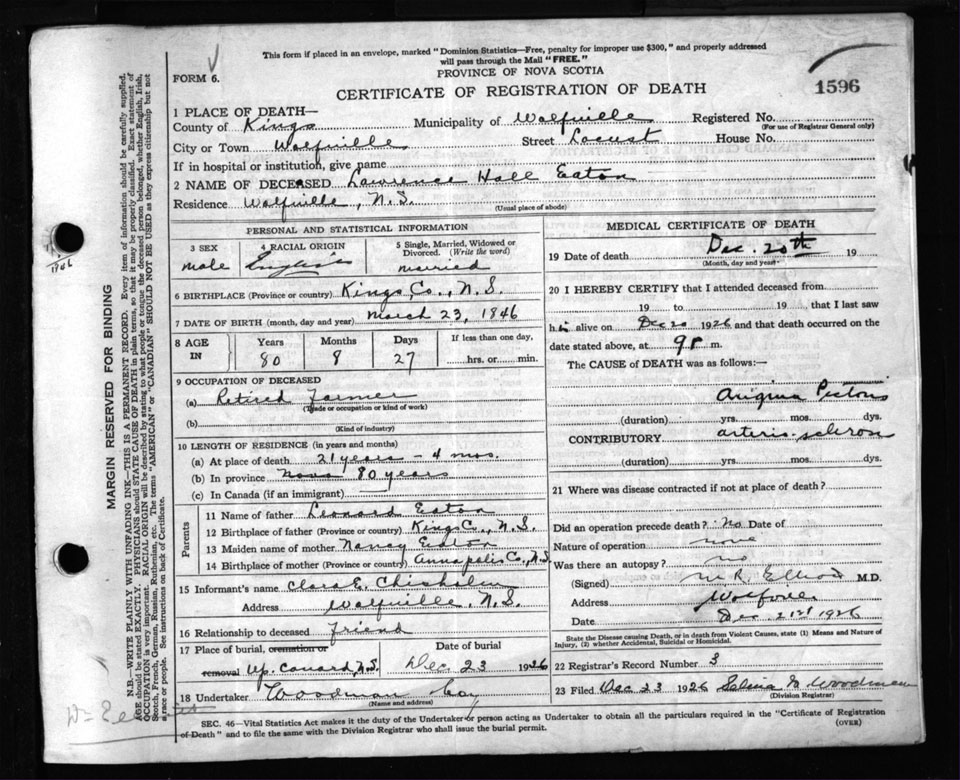 This form if placed in an envelope, marked "Dominion Statistics—Free, penalty for improper use $300," and properly addressed
will pass through the Mail "FREE."
PROVINCE OF NOVA SCOTIA
FORM 6.
CERTIFICATE OF REGISTRATION OF DEATH
1596
1 PLACE OF DEATH—
County of Kings Municipality of Wolfville Registered No.
(For use of Registrar General only)
City or Town Wolfville Street Locust House No.
If in hospital or institution, give name
2 NAME OF DECEASED Lawrence Hall Eaton
Residence Wolfville, N.S.
(Usual place of abode)
PERSONAL AND STATISTICAL INFORMATION
3 SEX 4 RACIAL ORIGIN 5 Single, Married, Widowed or
Divorced. (Write the word)
male English married
6 BIRTHPLACE (Province or country) Kings Co., N.S.
7 DATE OF BIRTH (month, day and year) March 23, 1846
8 AGE IN Years Months Days If less than one day,
80 8 27 hrs. or min.
9 OCCUPATION OF DECEASED
(a) Retired farmer
(Trade or occupation or kind of work)
(b)
(Kind of industry)
10 LENGTH OF RESIDENCE (in years and months)
(a) At place of death 21 years - 4 mos.
(b) In province Nova 80 years
(c) In Canada (if an immigrant)
Parents
11 Name of father Leonard Eaton
12 Birthplace of father (Province or country) Kings Co., N.S.
13 Maiden name of mother Nancy Eaton
14 Birthplace of mother (Province or country) Annapolis Co., N.S.
15 Informant's name Clara E. Chisholm
Address Wolfville, N.S.
16 Relationship to deceased friend
17 Place of burial, cremation or Date of burial
removal Up. Canard, N.S. Dec 23 1926
18 Undertaker Woodman
(Name and address)
MEDICAL CERTIFICATE OF DEATH
19 Date of death Dec. 20th 19
(Month, day and year)
20 I HEREBY CERTIFY that I attended deceased from
19 to 19 , that I last saw
him alive on Dec 20 1926 and that death occurred on the
date stated above, at 9 P m.
The CAUSE OF DEATH was as follows:—
Angina Pectoris
(duration) yrs. mos. dys.
CONTRIBUTORY arterio-scleros
(duration) yrs. mos. dys.
21 Where was disease contracted if not at place of death?
Did an operation precede death? No Date of
Nature of operation none
Was there an autopsy? no
(Signed) M. R. Elliott M.D.
Address Wolfville
Date Dec 21st 1926
State the Disease causing Death, or in death from Violent Causes, state (1) Means and Nature of
Injury, (2) whether Accidental, Suicidal or Homicidal.
22 Registrar's Record Number 3
23 Filed Dec 23 1926 M Woodman
(Division Registrar)
SEC. 46—Vital Statistics Act makes it the duty of the Undertaker or person acting as Undertaker to obtain all the particulars required in the "Certificate of Registration
of Death" and to file the same with the Division Registrar who shall issue the burial permit.
(OVER)
MARGIN RESERVED FOR BINDING
N.B.—WRITE PLAINLY WITH UNFADING INK—THIS IS A PERMANENT RECORD. Every item of information should be carefully supplied.
AGE should be stated EXACTLY. PHYSICIANS should STATE CAUSE OF DEATH in plain terms, so that it may be properly classified. Exact statement of
OCCUPATION is very important. RACIAL ORIGIN will be described by stating to what people or tongue the deceased person belonged, whether English, Irish,
Scotch, French, German, Russian, Ruthenian, etc. The terms "AMERICAN" or "CANADIAN" SHOULD NOT BE USED as they express citizenship but not
a race or people. See instructions on back of Certificate.
1846